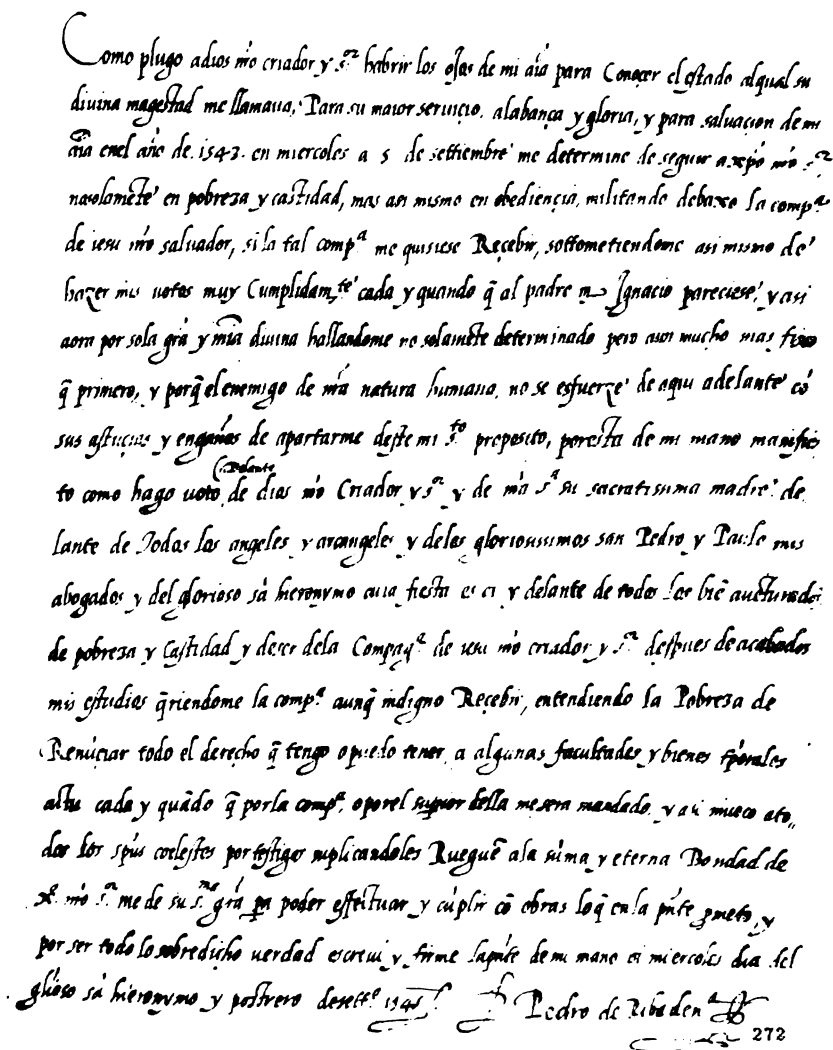 Como plugo adios nr̃o criador y s.or habrir los ojos de mi aĩa para Conoçer el estado alqual su
diuina magestad me llamaua, Para su maior seruiçio. alabança y gloria, y para saluaçion de mi
aĩa enel año de .1543. en miercoles a 5 de settiembre me determine de seguir a xp̃o nr̃o s.or
nosolamẽte en pobreza y castidad, mas asi mismo en obediençia, militando debaxo la comp.a
de iesu nr̃o saluador, si la tal comp.a me quisiese Reçebir, sottometiendome asi mismo de
hazer mis uotos muy Cumplidam.te cada y quando q̃ al padre m Ignacio pareciese, y asi
aora por sola gr̃a y mĩa diuina hallandome no solamẽte determinado pero aun mucho mas fixo
q̃ primero, y porq̃ el enemigo de nr̃a natura humana. no se esfuerze de aqui adelante cõ
sus astuçias y engaños de apartarme deste mi s.to proposito, poresta de mi mano manifies
to como hago uoto delante de dios nr̃o Criador y s.or y de nr̃a s.a su sacratissima madre. de
lante de Todos los angeles y arcangeles y delos gloriosissimos san Pedro y Paulo mis
abogados y del glorioso sã hieronymo cuia fiesta es oi y delante de todos los biẽ auẽturados
de pobreza y Castidad y de ser dela Compañ.a de iesu nr̃o criador y s.or despues de acabados
mis estudios q̃riendome la comp.a aunq̃ indigno Reçebir, entendiendo la Pobreza de
Renũçiar todo el derecho q̃ tengo o puedo tener a algunas facultades y bienes tp̃orales
cada y quãdo q̃ por la comp.a, o por el supior della me sera mandado. y asi inuoco ato„
dos los sp̃us coelestes por testigos suplicandoles Rueguẽ ala sũma y eterna Bondad de
x.o nr̃o s.or me de su s.ma gr̃a pa poder effettuar y cũplir cõ obras loq̃ en la pñte pmeto, y
por ser todo lo sobredicho uerdad escreui y firme la pñte de mi mano oi miercoles dia del
glioso sã hieronymo y postrero de sett.e 1545 Pedro de Ribaden.a
272